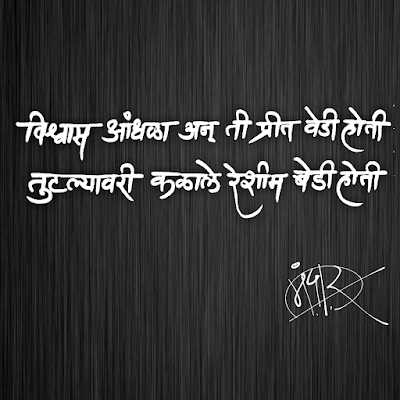 विश्वास आंधळा अन् ती प्रीत वेडी होती
तुटल्यावरी कळाले रेशीम बेडी होती
मंदार